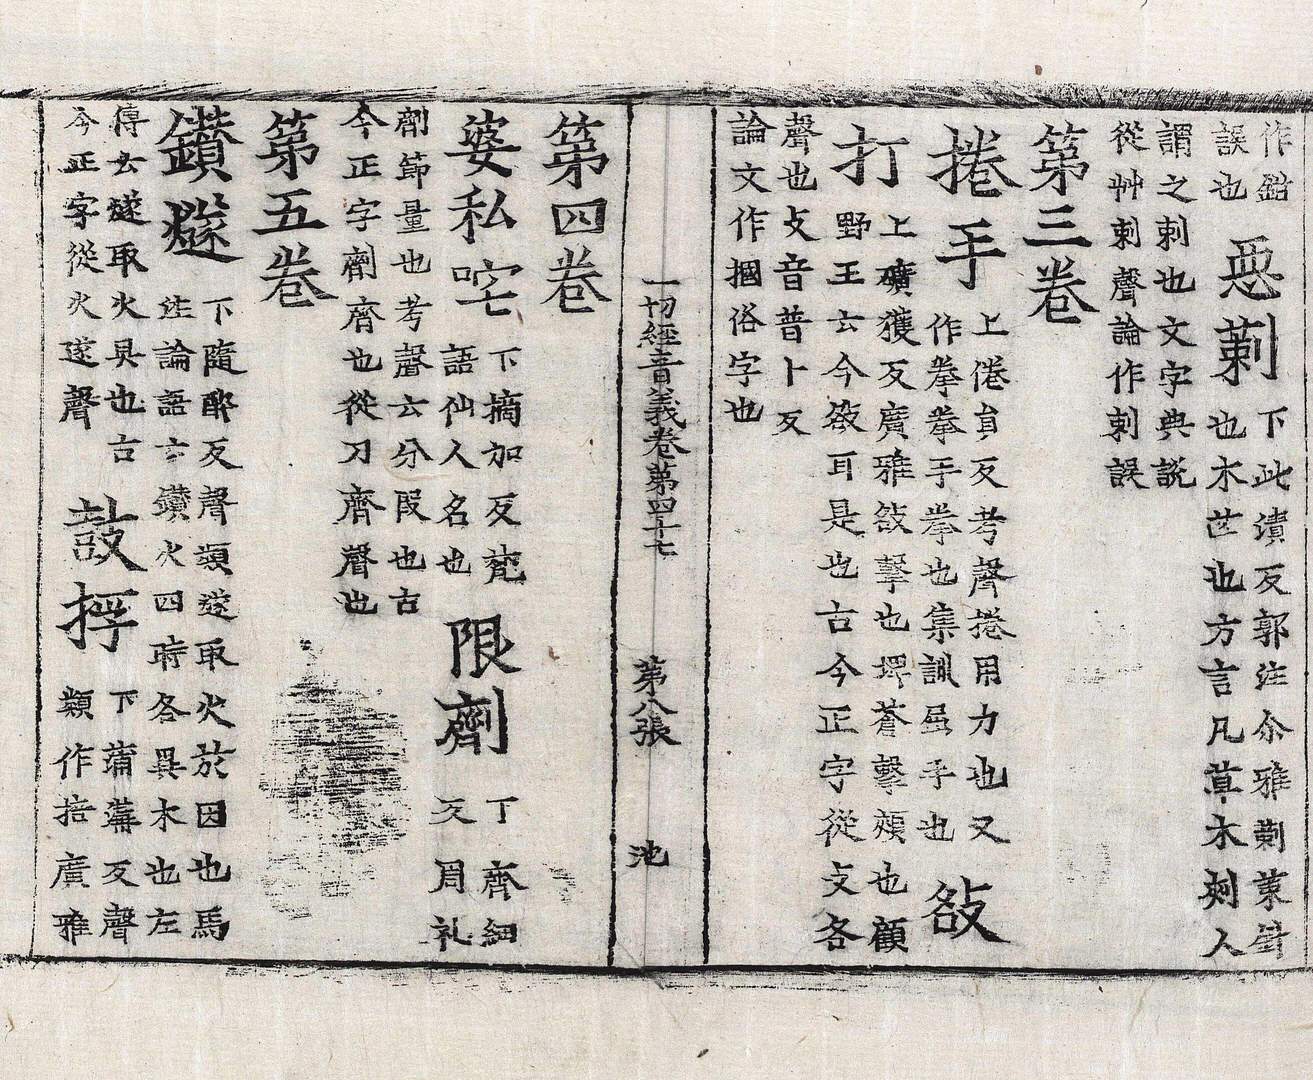 作鉛
誤也
惡莿
下此漬反郭注尒雅莿萊
也木芒也方言凡草木刺人
謂之刺也文字典說
從艸刺聲論作刺誤
第三卷
捲手
上倦負反考聲捲用力也又
作拳拳手拳也集訓屈手也
㪉
打
上礦獲反廣雅㪉擊也埤蒼擊頰也顧
野王云今㪉耳是也古今正字從攴各
聲也攴音普卜反
論文作摑俗字也
一切經音義卷第四十七 第八張 池
第四卷
婆私咤
下摘加反梵
語仙人名也
限劑
丁齊細
反周礼
劑節量也考聲云分段也古
今正字劑齊也從刀齊聲也
第五卷
鑚燧
下隨醉反聲類遂取火於因也馬
注論語云鑚火四時各異木也左
傳云燧取火具也古
今正字從火遂聲
鼓捊
下蒲溝反聲
類作掊廣雅